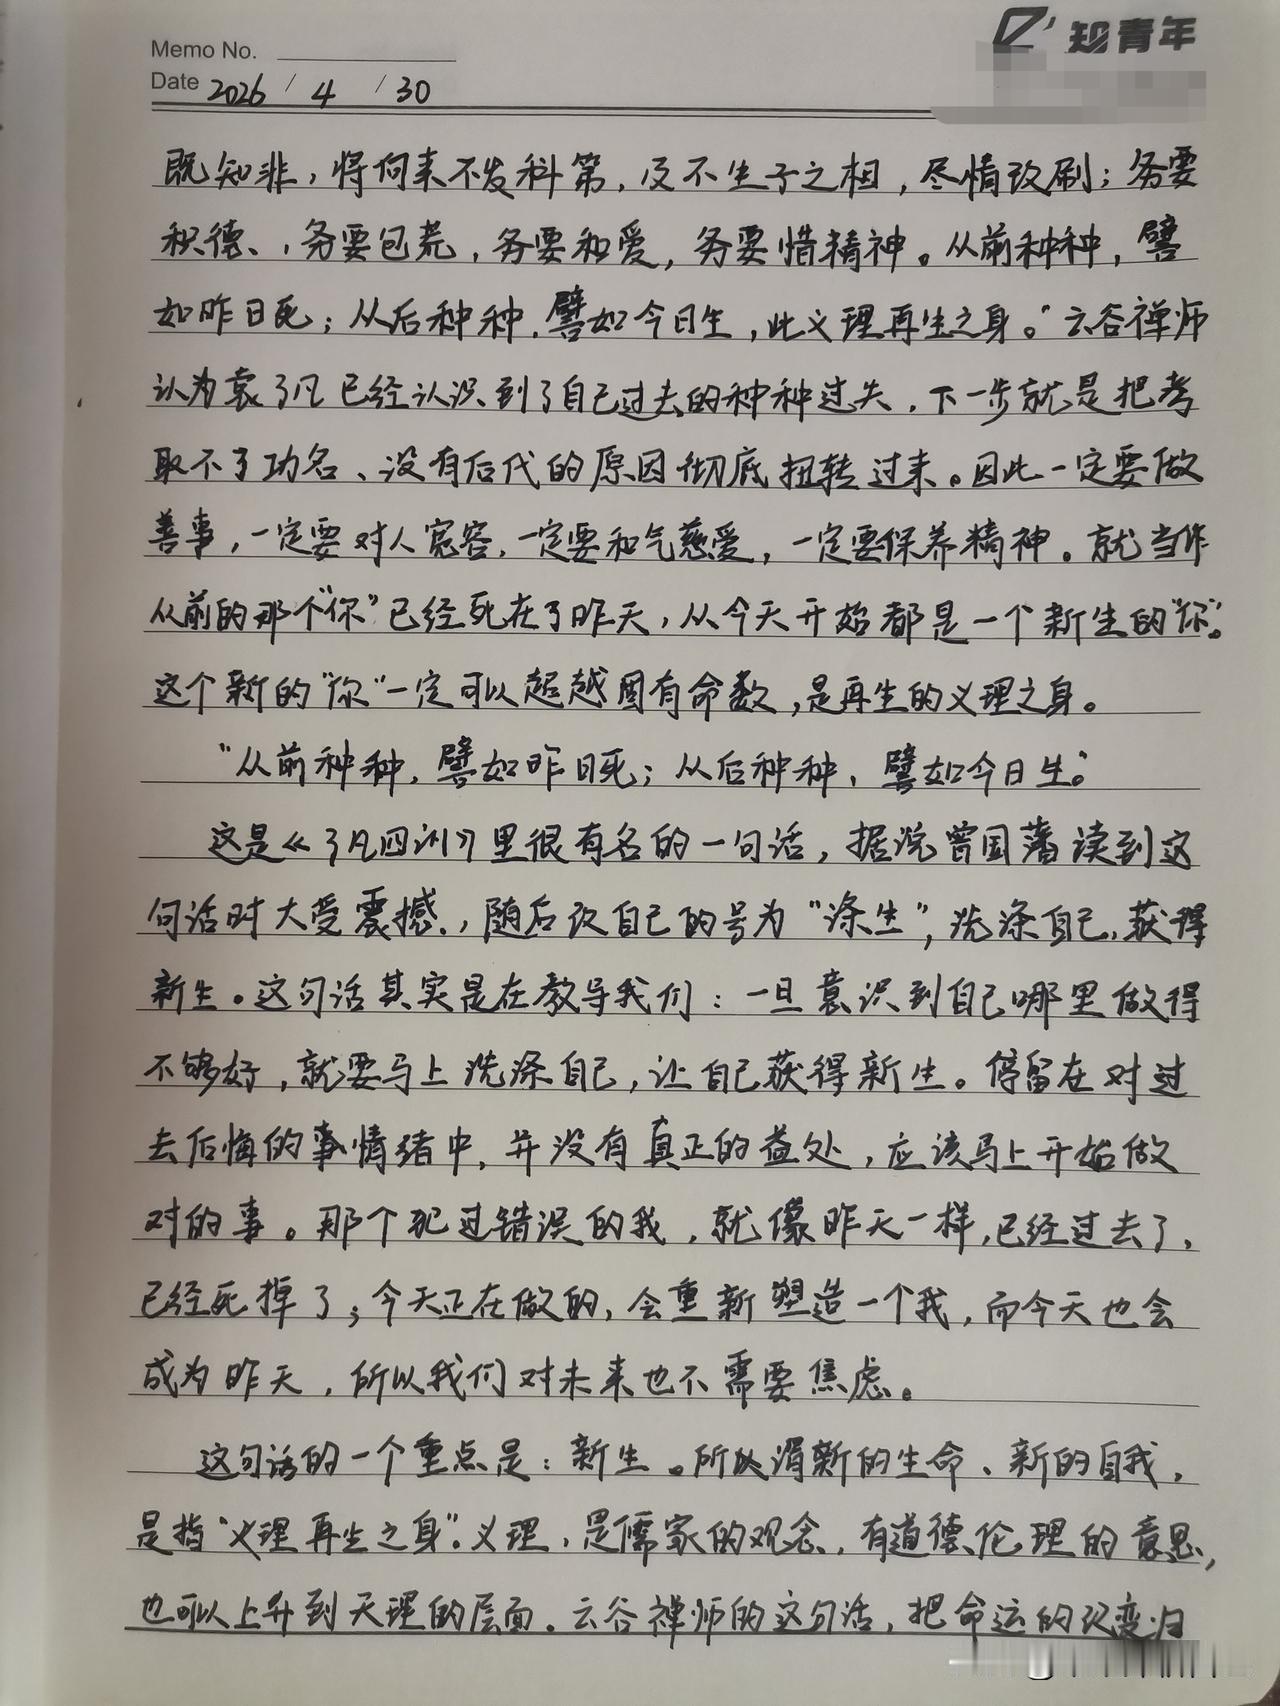 知青年
Memo No.
Date 2026 / 4 / 30
既知非，将向来不发科第，及不生子之相，尽情改刷；务要
积德，务要包荒，务要和爱，务要惜精神。从前种种，譬
如昨日死；从后种种，譬如今日生，此义理再生之身。”云谷禅师
认为袁了凡已经认识到了自己过去的种种过失，下一步就是把考
取不了功名、没有后代的原因彻底扭转过来。因此一定要做
善事，一定要对人宽容，一定要和气慈爱，一定要保养精神。就当作
从前的那个“你”已经死在了昨天，从今天开始都是一个新生的“你”。
这个新的“你”一定可以超越固有命数，是再生的义理之身。
“从前种种，譬如昨日死；从后种种，譬如今日生。”
这是《了凡四训》里很有名的一句话，据说曾国藩读到这
句话时大受震撼，随后改自己的号为“涤生”，洗涤自己，获得
新生。这句话其实是在教导我们：一旦意识到自己哪里做得
不够好，就要马上洗涤自己，让自己获得新生。停留在对过
去后悔的事情绪中，并没有真正的益处，应该马上开始做
对的事。那个犯过错误的我，就像昨天一样，已经过去了，
已经死掉了；今天正在做的，会重新塑造一个我，而今天也会
成为昨天，所以我们对未来也不需要焦虑。
这句话的一个重点是：新生。所以谓新的生命、新的自我，
是指“义理再生之身”。义理，是儒家的观念，有道德伦理的意思，
也可以上升到天理的层面。云谷禅师的这句话，把命运的改变归